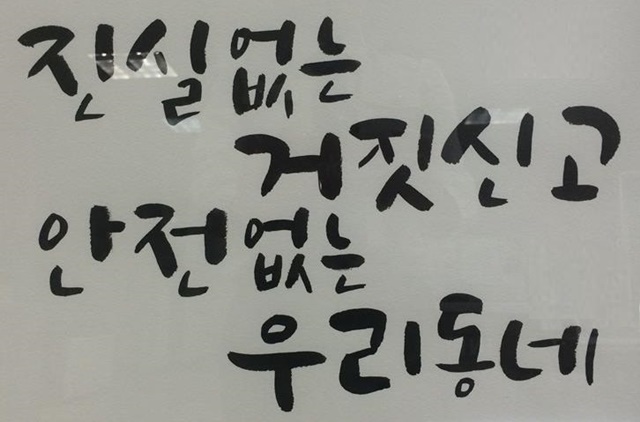 진실없는
거짓신고
안전없는
우리동네